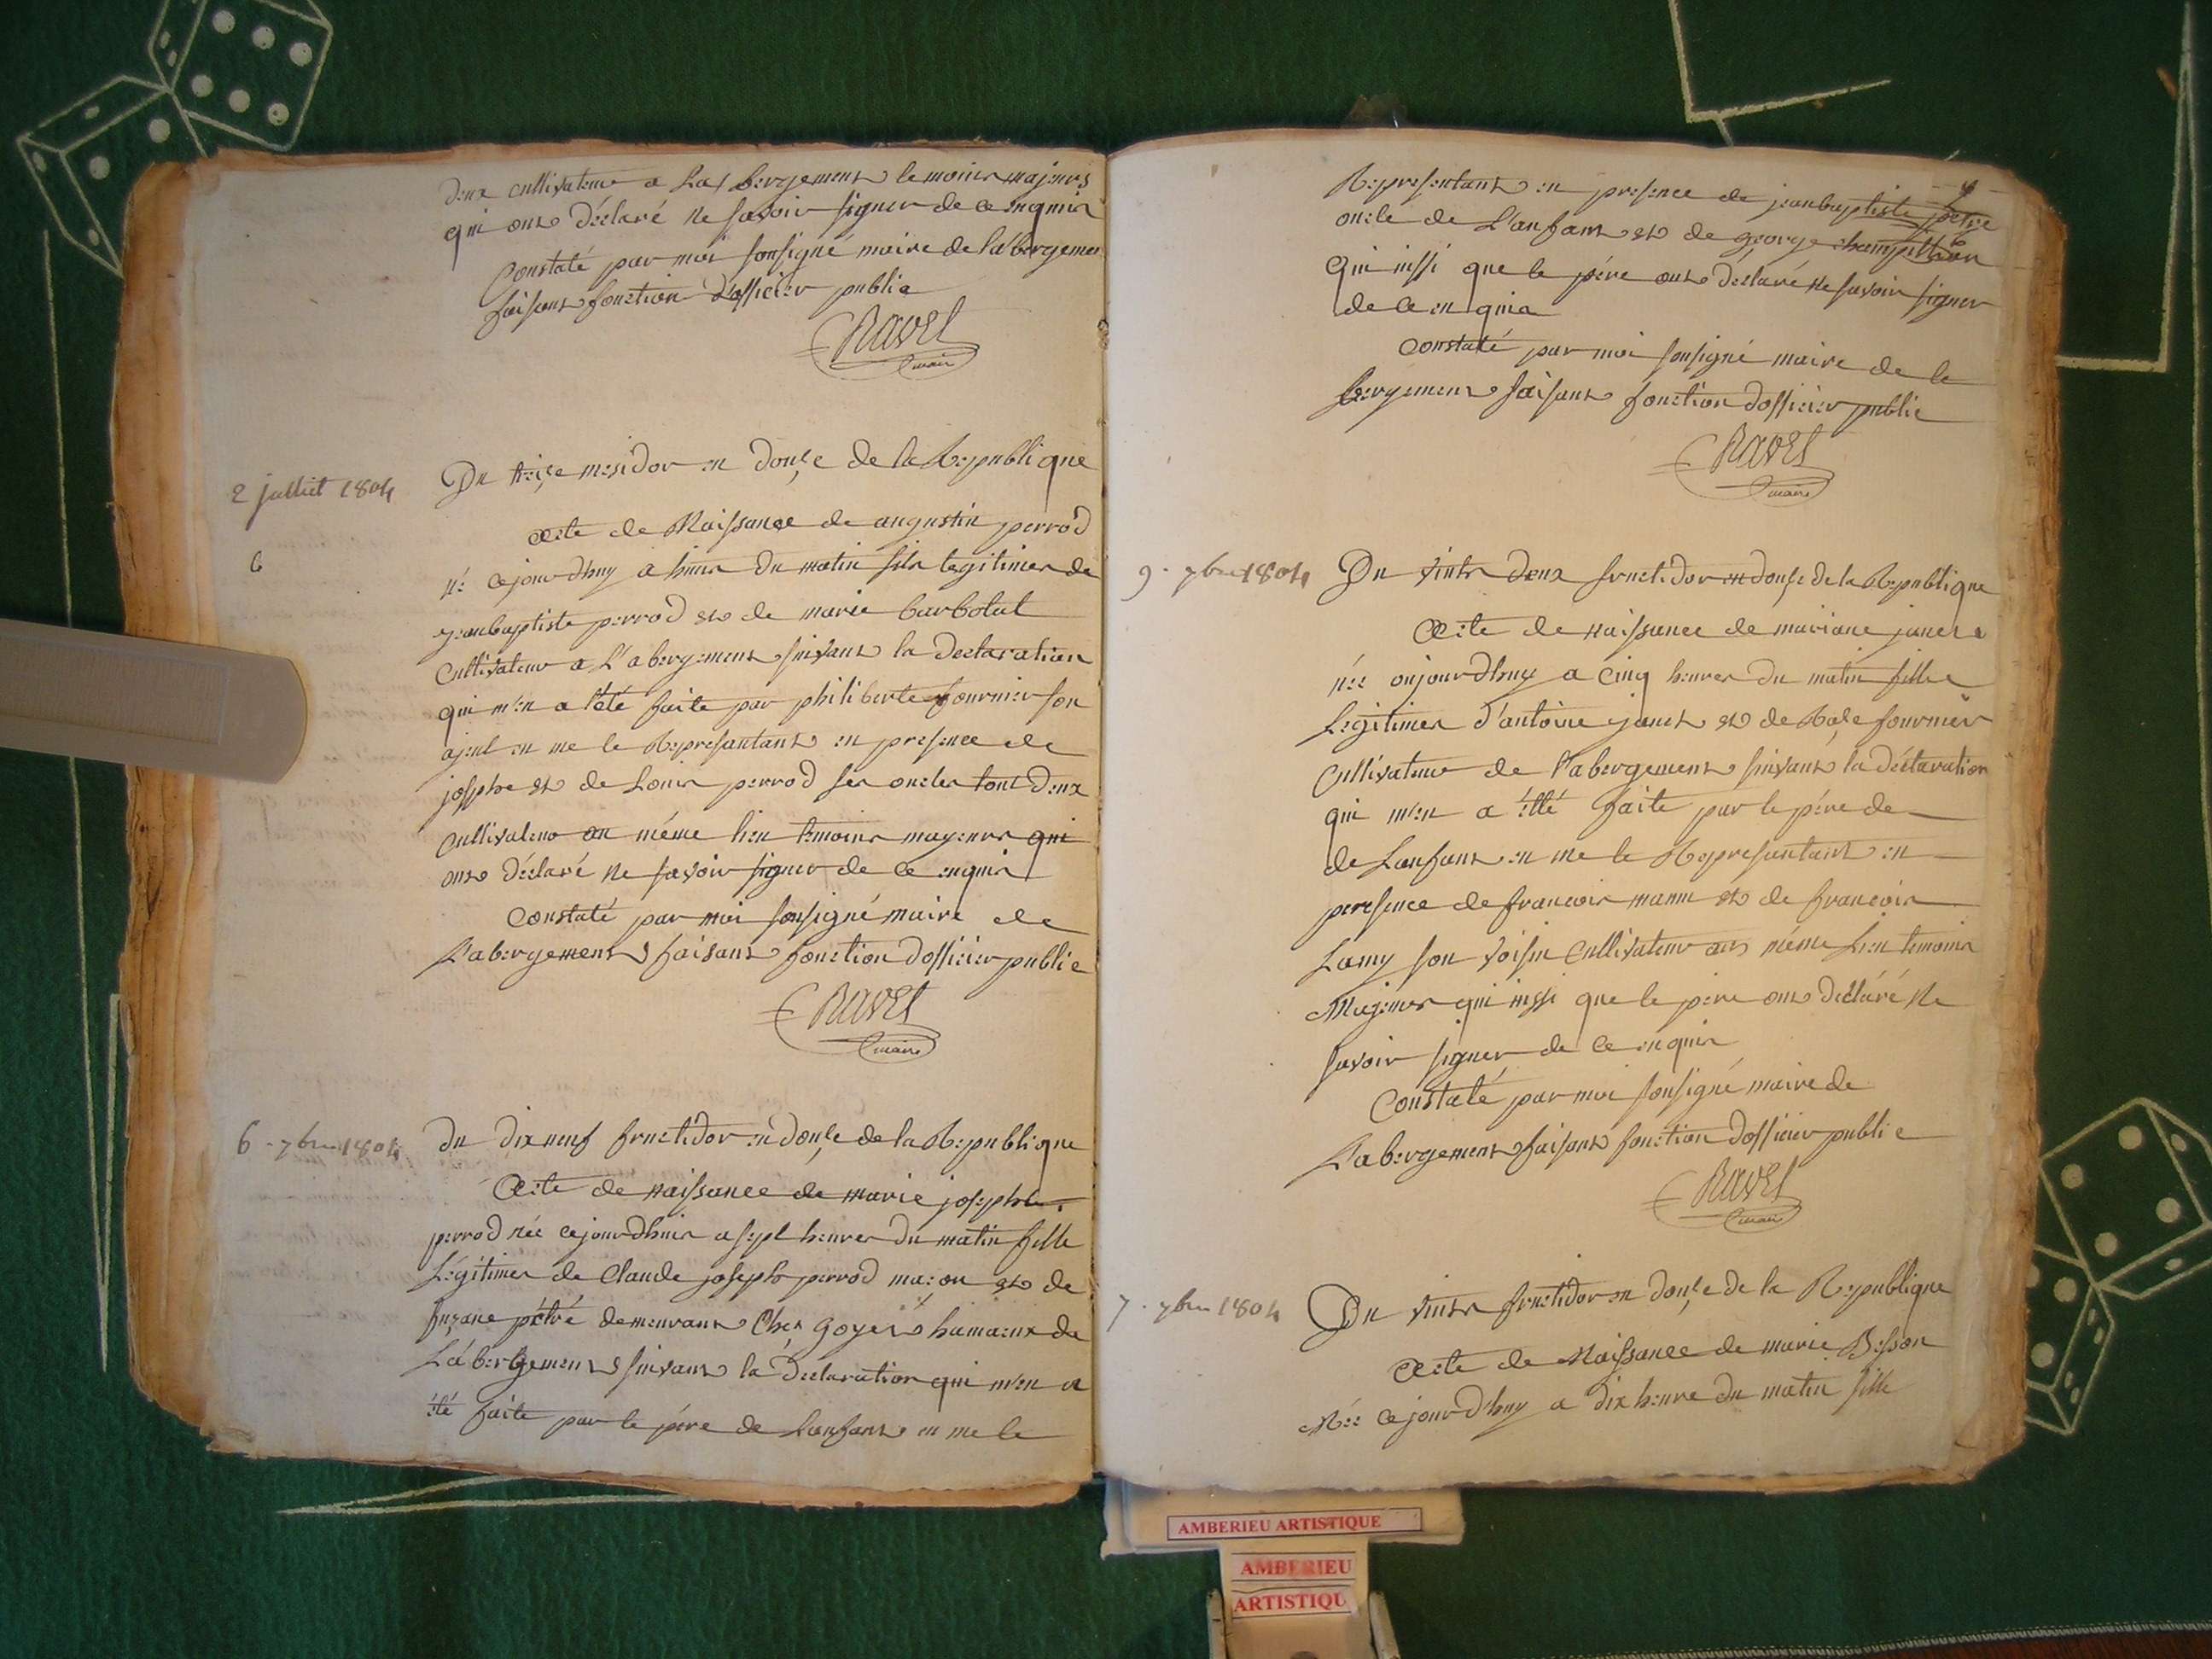 deux cultivateur a Labergement temoins majeurs
qui ont déclaré ne savoir signer de ce enquis
Constaté par moi sousigné maire de labergemen
faisant fonction d'officier public
Ravet
maire
2 juillet 1804
Du treize mesidor en douze de la Republique
acte de Naissance de augustin perrod
6
né cejourdhuy a heures du matin fils legitimes de
jeanbaptiste perrod et de marie barbolat
cultivateur a L'abergement suivant la declaration
qui m'en a été faite par philiberte fournier son
ajeul en me le Representant en presence de
josephe et de Louis perrod ses oncles tout deux
cultivateur au même lieu temoins mageurs qui
ont déclaré ne savoir signer de ce enquis
Constaté par moi sousigné maire de
L'abergement faisant fonction dofficier public
Ravet
maire
6 - 7bre 1804
du dix neuf fructidor en douze de la Republique
Acte de naissance de marie josephte
perrod née cejourdhuis a sept heures du matin fille
Légitimes de Claude joseph perrod maçon et de
suzane pétré demeurant Chez goyet hamaux de
Labergement suivant la Declaration qui m'en a
été faite par le pére de Lanfant en me le
Representant en presence de jeanbaptiste
oncle de L'anfant et de george
qui inssi que le pére ont déclaré ne savoir signer
de ce en quis
Constaté par moi sousigné maire de la
bergement faisant fonction dofficier public
Ravet
maire
9 - 7bre 1804
Du vints deux fructidor en douze de la Republique
Acte de naissance de mariane janet
née oujourdhuy a cinq heures du matin fille
Légitimes d'antoine janet et de Roze fournier
Cultivateur de l'abergement suivant la déclaration
qui m'en a étté faite par le pére de
de Lanfant en me le Representant en
peresence de francois mann et de francois
Lamy son voisin Cultivateur au même Lieu temoins
Majeurs qui inssi que le pere ont déclaré ne
savoir signer de ce enquis
Constaté par moi sousigné maire de
L'abergement faisant fonction dofficier public
Ravet
maire
7 - 7bre 1804
Du vints fructidor en douze de la Republique
Acte de Naissance de marie Besson
Née cejourdhuy a dix heure du matin fille
AMBERIEU ARTISTIQUE
AMBERIEU
ARTISTIQU